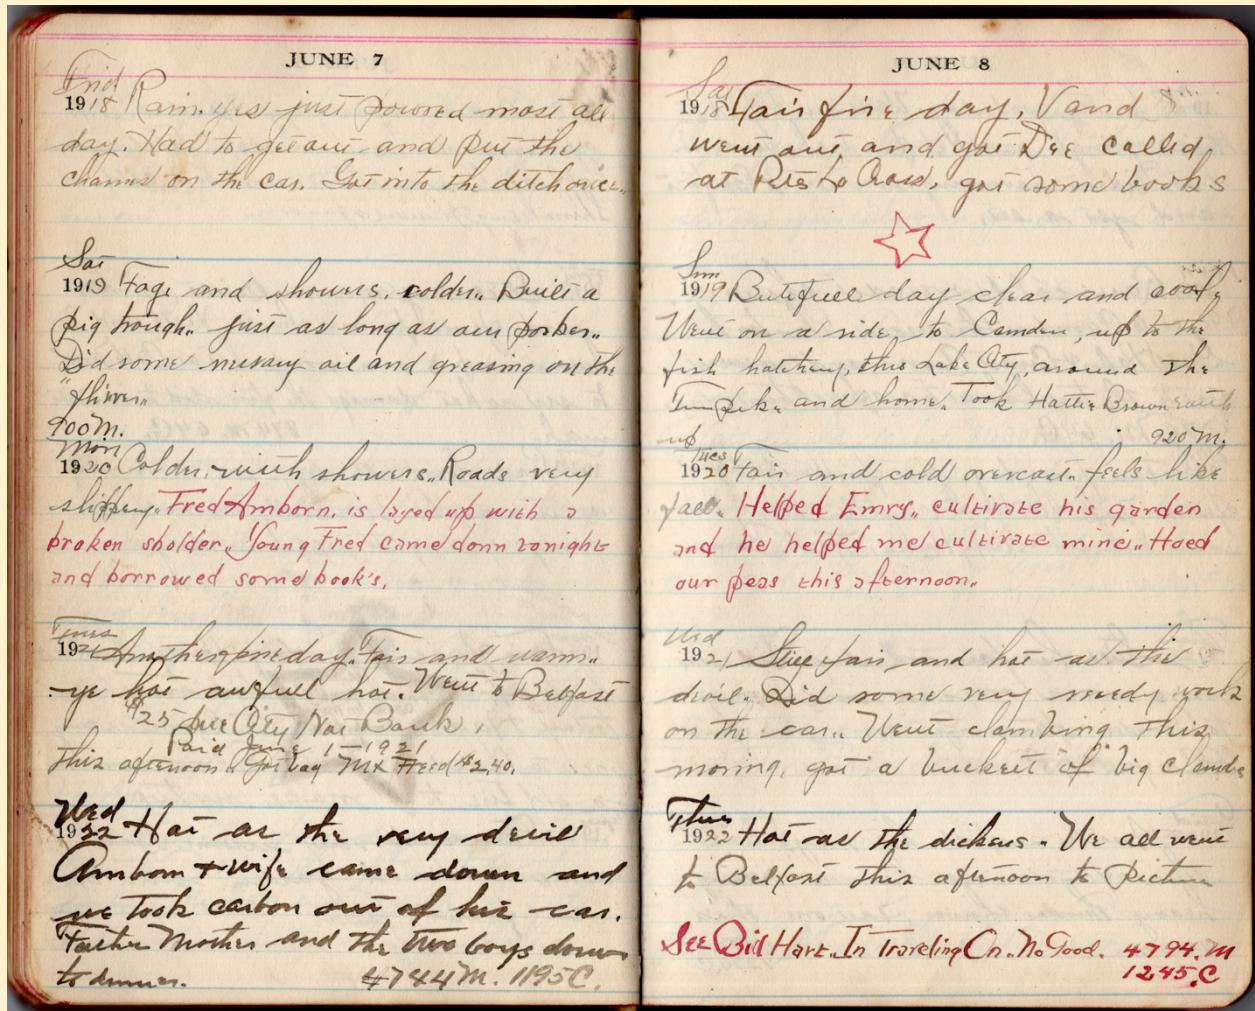 JUNE 7
Frid
1918 Rain. yes just powred most all
day. Had to get out and put the
chains on the car. Got into the ditch once..
Sat
1919 Fogs and showers, colder.. Built a
pig trough.. just as long as our porker..
Did some messy oil and greasing on the
"flivver..
900 M.
Mon
1920 Colder, with showers.. Roads very
slippery. Fred Amborn, is layed up with a
broken sholder.. Young Fred came down tonight
and borrowed some book's.
Tues
1921 Another fine day.. Fair and warm..
-ye hot awfull hot. Went to Belfast
$25 City Nat Bank.
Paid June 1 - 1921
this afternoon. Got bag Mx Feed $2.40.
Wed
1922 Hot as the very devil
Amborn + wife came down and
we took carbon out of his car.
Father Mother and the two boys down
to dinner. 4744 M. 1195 C.
JUNE 8
Sat
1918 Fair fine day, V and
went out and got Dee called
at got some books
Sun
1919 Butefull day clear and cool,
Went on a ride, to Camden, up to the
fish hatchery, thru Lake City, around the
Turnpike and home. Took Hattie Brown
up 920 M.
Tues
1920 Fair and cold overcast.. feels like
fall. Helped Emry,. cultivate his garden
and he helped me cultivate mine.. Hoed
our peas this afternoon..
Wed
1921 Still fair and hot as the
devil. Did some very needy work
on the car.. Went clambing this
moring, got a buckett of big clambs
Thurs
1922 Hot as the dickens. We all went
to Belfast this afternoon to Picture
See Bill Hart.. In Traveling On.. No Good. 4794. M
1245. C